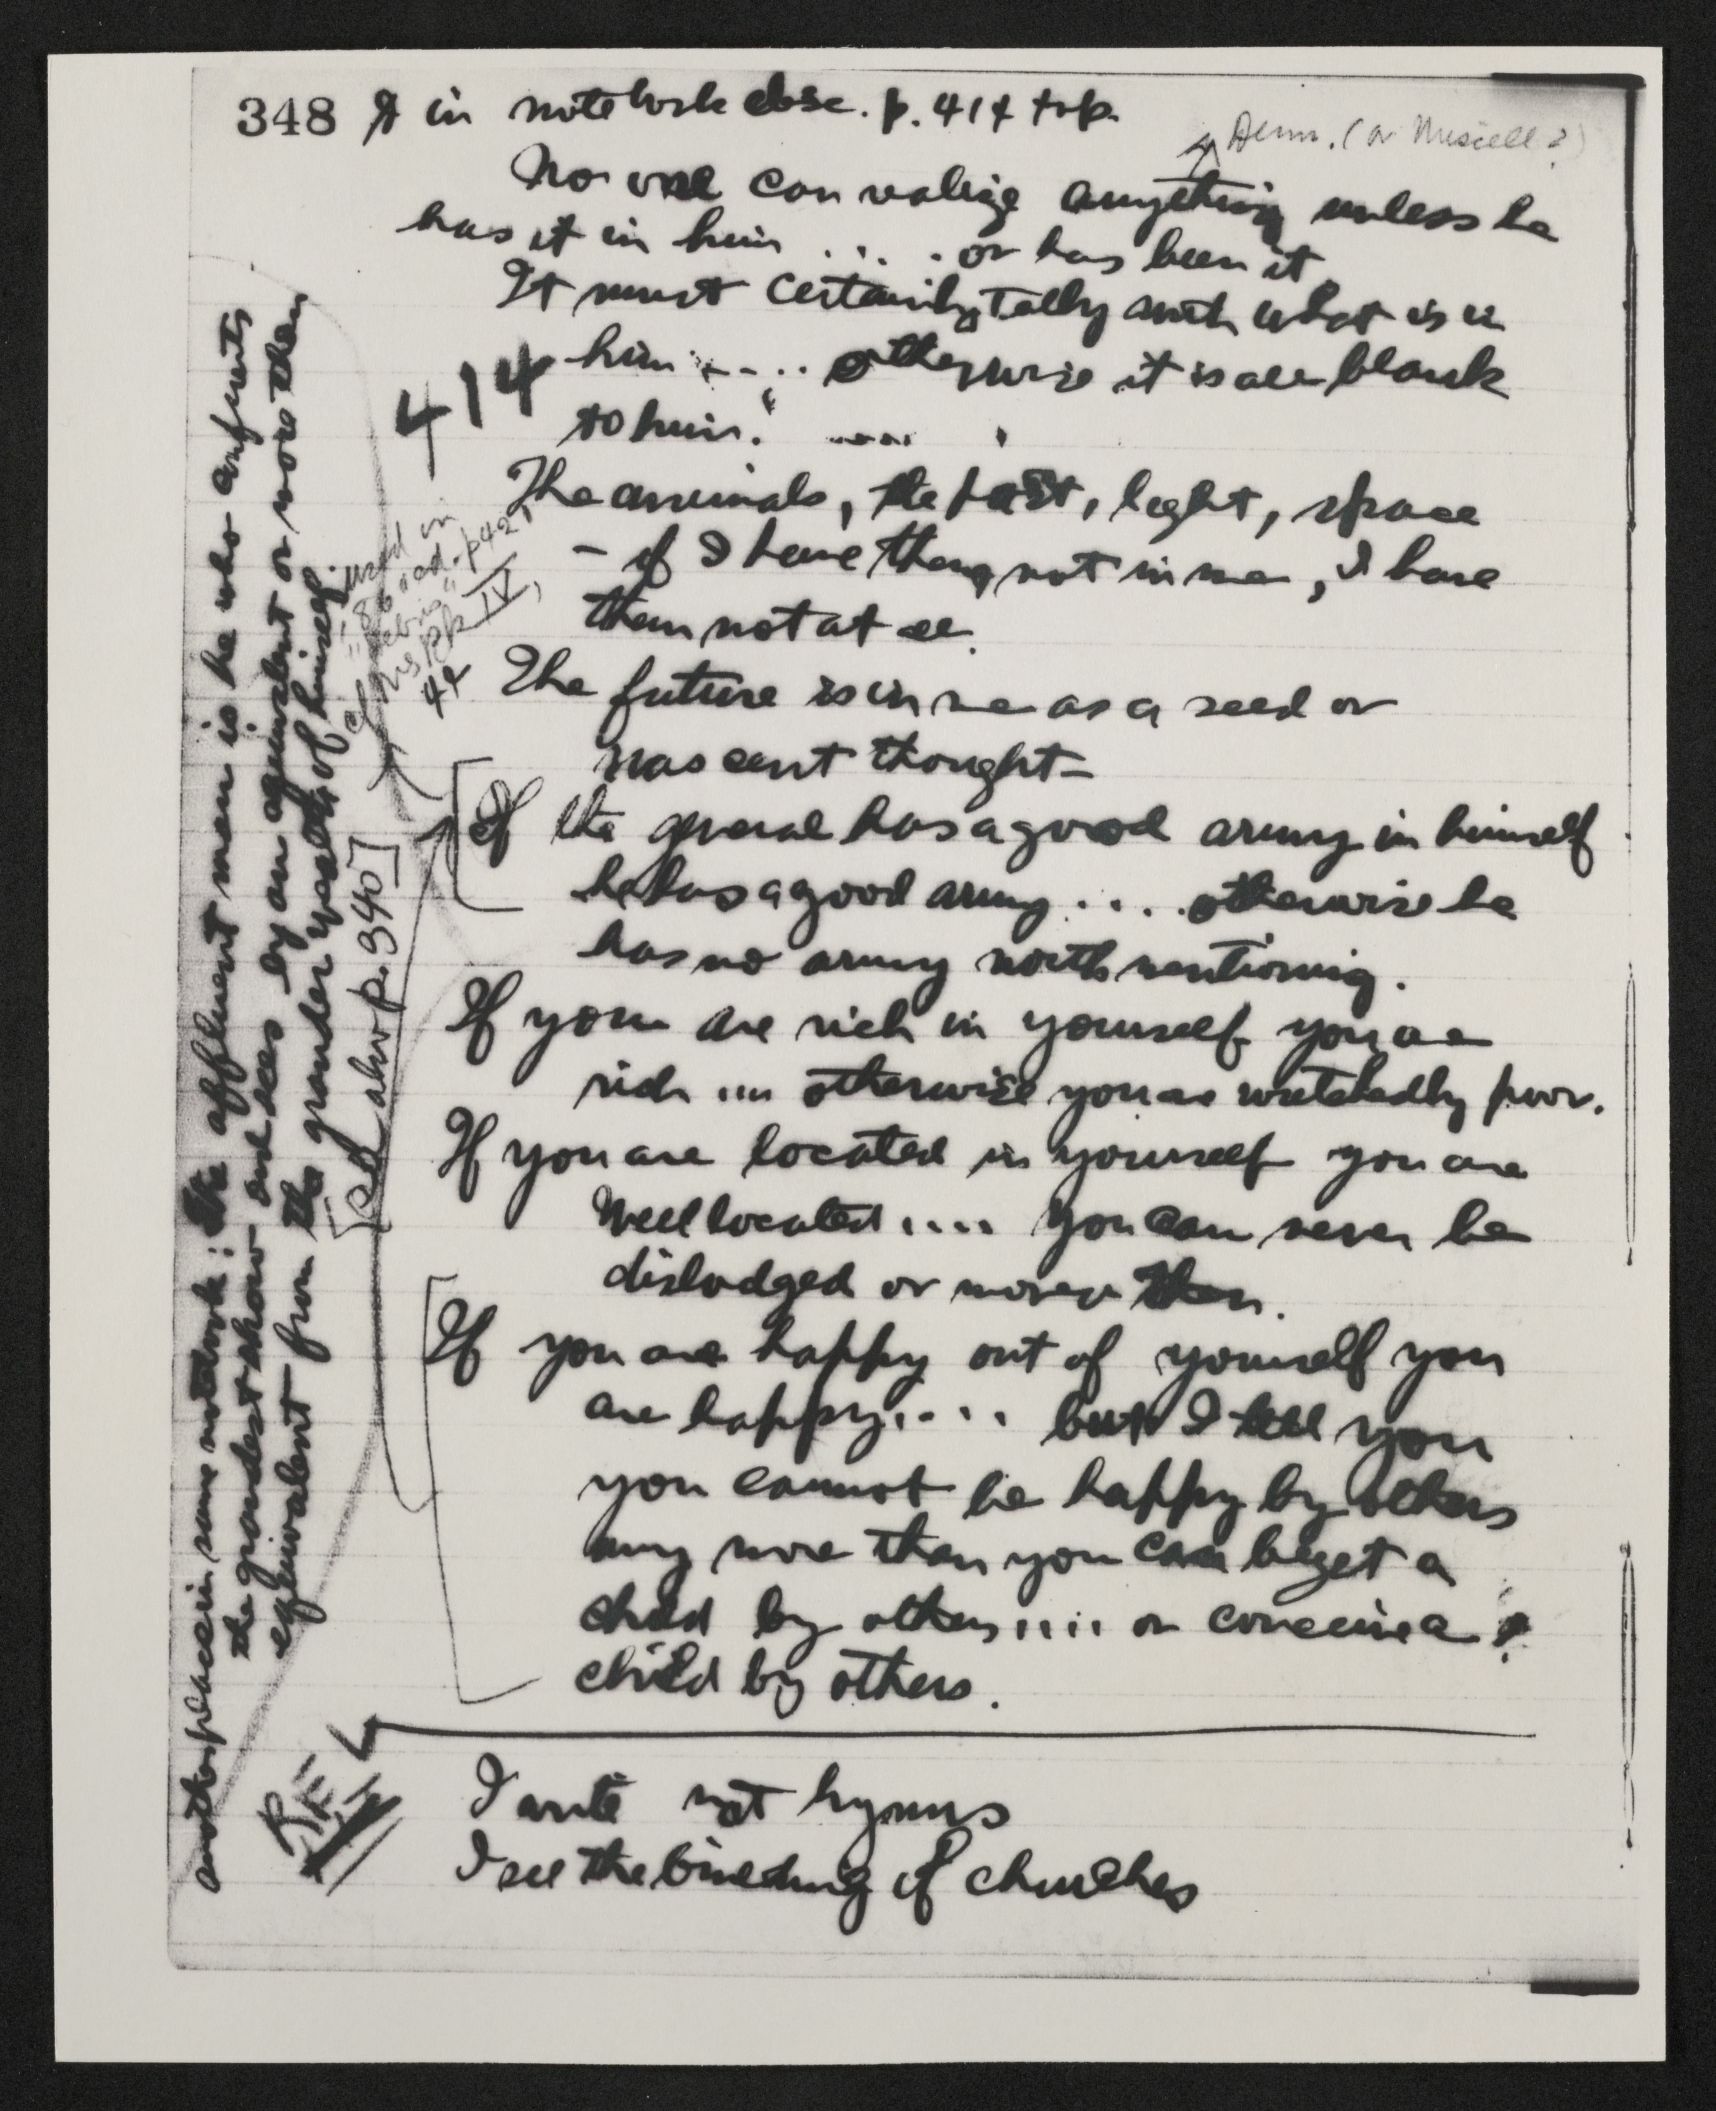 348 in notebook desc. p. 414 top.
Democ. (or Miscell?)
No one can realize anything unless he
has it in him . . . . or has been it
It must certainly tally with what is in
him . . . . otherwise it is all blank
to him. ....
414
The animals, the past, light, space
- if I have them not in me, I have
them not at all.
The future is in me as a seed or
nascent thought -
If the general has a good army in himself
he has a good army . . . . otherwise he
has no army worth mentioning.
If you are rich in yourself you are
rich .... otherwise you are wretchedly poor.
If you are located in yourself you are
well located .... you can never be
dislodged or moved thence.
If you are happy out of yourself you
are happy .... but I tell you
you cannot be happy by others
any more than you can beget a
child by others .... or conceive a
child by others.
I write not hymns
I see the building of churches
another place in same notebook: the affluent man is he who confronts
the grandest show and sees by an equivalent or more than
equivalent from the grander wealth of himself.
[see also p. 340]
used in
p 421
IV,
REL